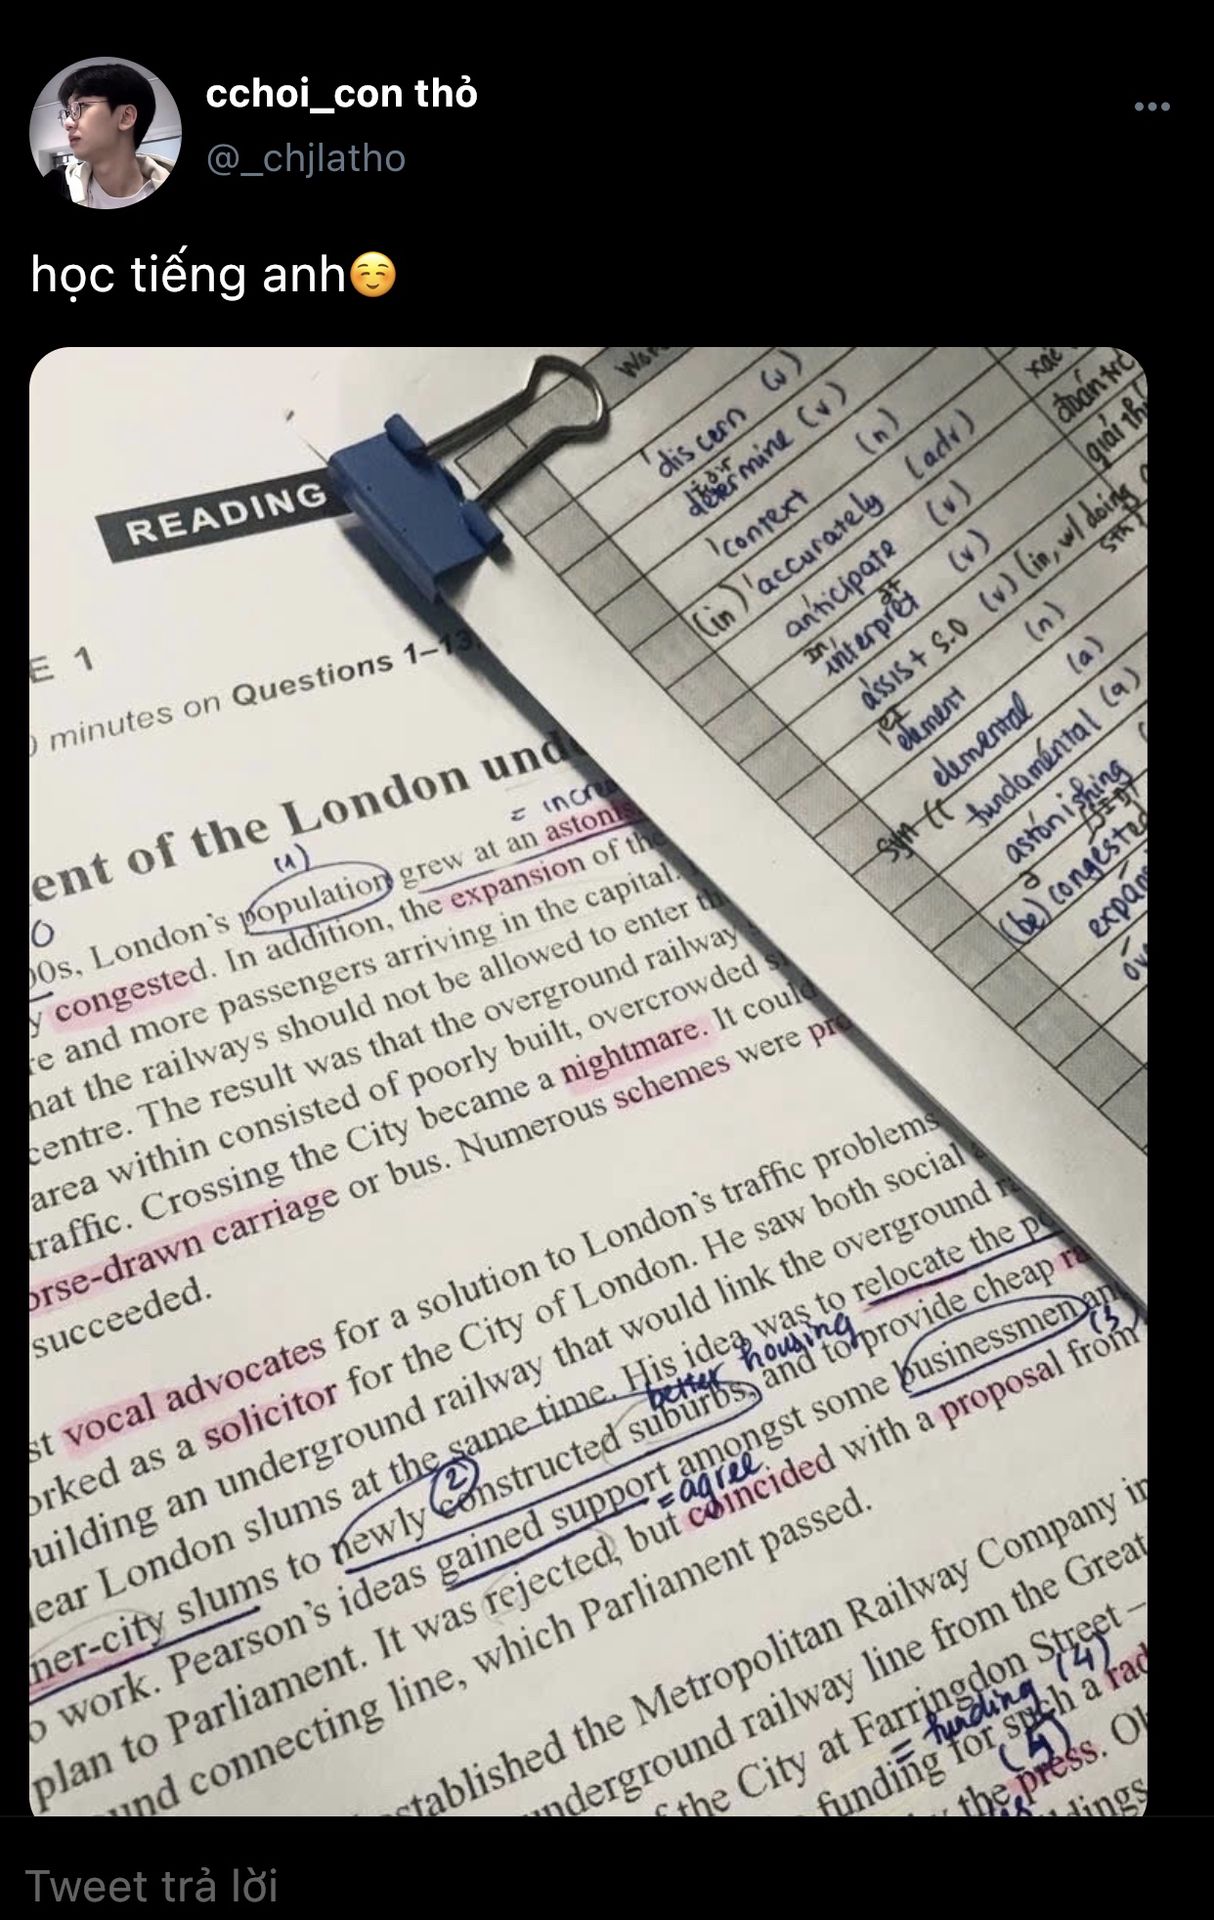 cchoi_con thỏ
@_chjlatho
học tiếng anh☺️
READING
E 1
minutes on Questions 1–13
ent of the London und
= incre
(1)
00s, London's population grew at an astonis
y congested. In addition, the expansion of the
re and more passengers arriving in the capital.
hat the railways should not be allowed to enter th
centre. The result was that the overground railway
area within consisted of poorly built, overcrowded s
traffic. Crossing the City became a nightmare. It could
orse-drawn carriage or bus. Numerous schemes were pro
succeeded.
st vocal advocates for a solution to London's traffic problems
orked as a solicitor for the City of London. He saw both social
uilding an underground railway that would link the overground r
lear London slums at the same time. His idea was to relocate the po
better housing
ner-city slums to newly constructed suburbs, and to provide cheap ra
(2)
(3)
o work. Pearson's ideas gained support amongst some businessmen an
= agree
plan to Parliament. It was rejected, but coincided with a proposal from
und connecting line, which Parliament passed.
stablished the Metropolitan Railway Company in
underground railway line from the Great
f the City at Farringdon Street –
= funding (4)
funding for such a rad
(5)
the press. Ol
ldings
discern (v)
determine (v)
context (n)
(in) accurately (adv)
anticipate (v)
interpret (v)
assist + s.o (v) (in, w/ doing sth)
element (n)
elemental (a)
syn fundamental (a)
astonishing
(be) congested
expan
xác
đoán trc
giải th
Tweet trả lời